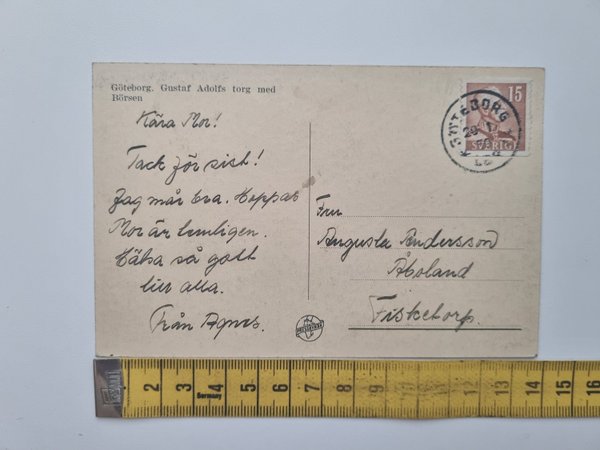 Göteborg. Gustaf Adolfs torg med
Börsen
Kära Mor!
Tack för sist!
Jag mår bra. Hoppas
Mor är lemligen.
Hälsa så gott
till alla.
Från Agnes.
Fru
Augusta Andersson
Åboland
Fisketorp.
15
SVERIGE
GÖTEBORG
PRESIDENT
2 3 4 5 6 7 8 9 10 11 12 13 14 15 16
Germany